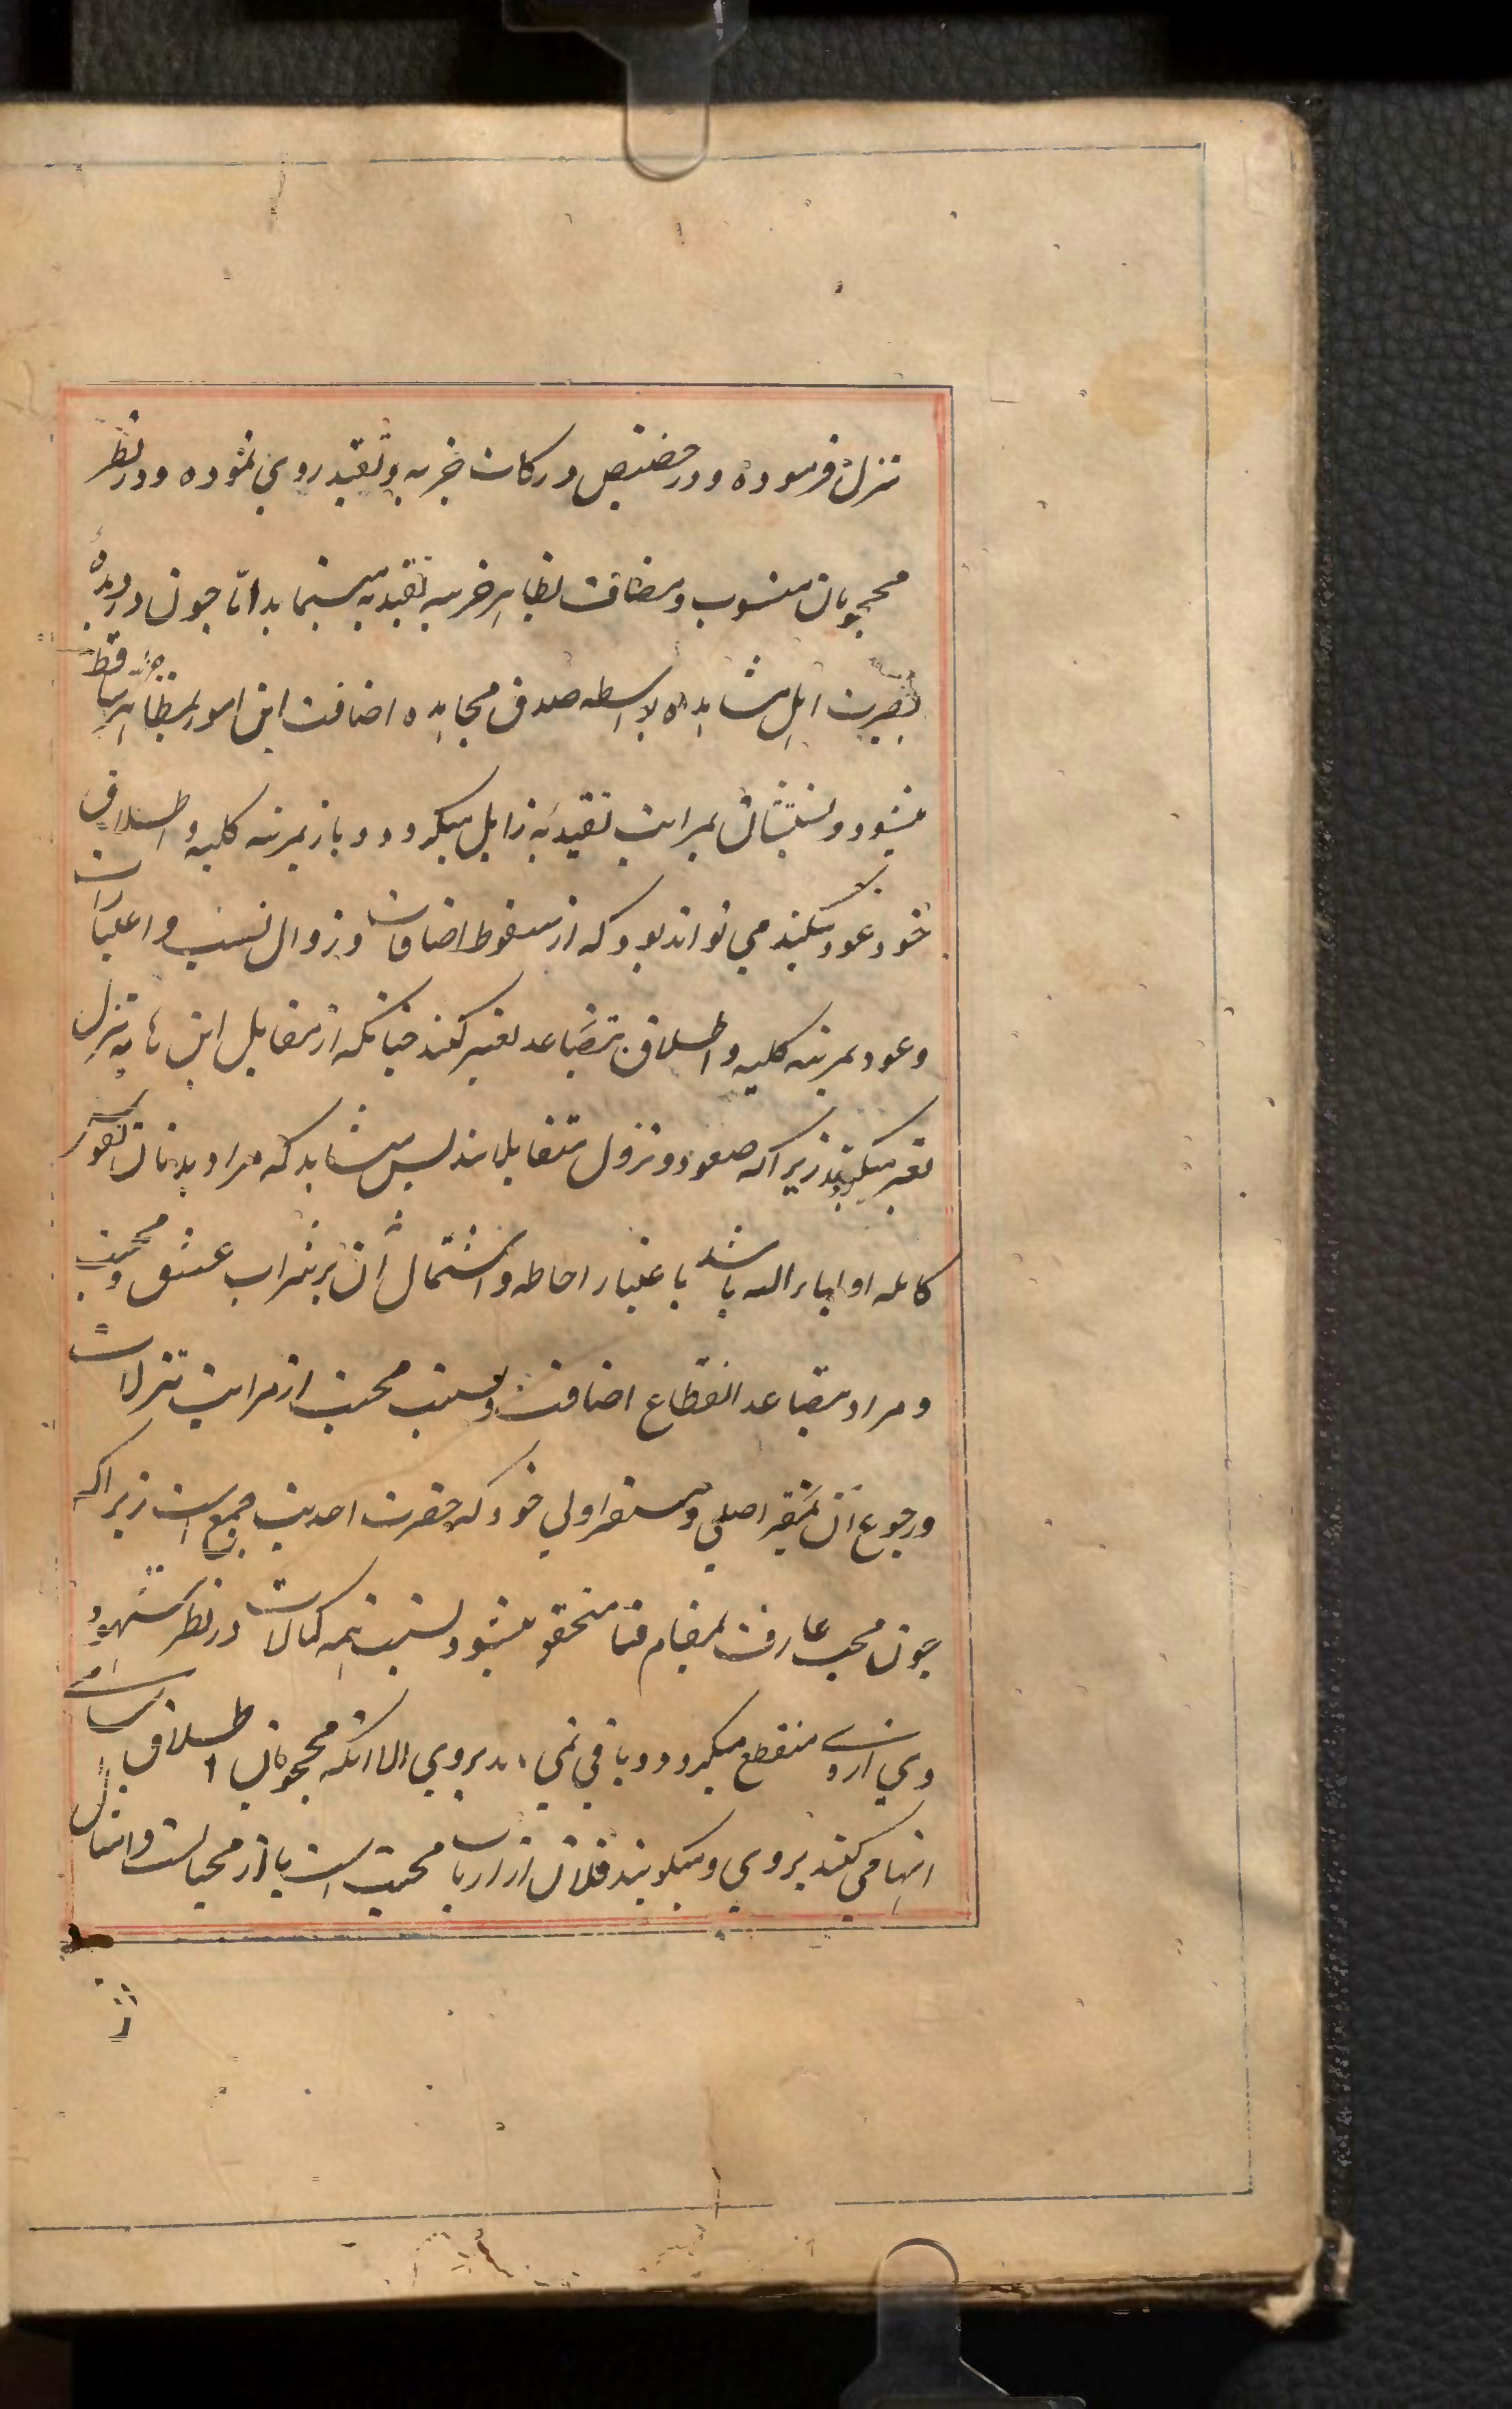 تنزل فرموده و در حضیض درکات جزئیه و تقید روی نموده و در نظر
محجوبان منسوب و مضاف بظاهر جزئیه تقیدیه مینماید اما چون در دیدهٔ
بصیرت اهل مشاهده بواسطه صدق مجاهده اضافت این امور بمظاهر جزئیه ساقط
میشود و نسبتشان بمراتب تقیدیه زایل میگردد و باز بمرتبه کلیه و اطلاق
خود عود میکنند می تواند بود که از سقوط اضافات و زوال نسب و اعتبارات
و عود بمرتبه کلیه و اطلاق بتصاعد تعبیر کنند چنانکه از مقابل این ها به تنزل
تعبیر میکنند زیرا که صعود و نزول متقابلانند پس میشاید که مراد بدنان نفوس
کامله اولیاء الله باشد باعتبار احاطه و اشتمال آن بر شراب عشق و محبت
و مراد بتصاعد انقطاع اضافت و نسبت محبت از مراتب تنزلات
و رجوع آن بمقر اصلی و مستقر اولی خود که حضرت احدیت جمع است زیرا که
چون محب عارف بمقام فنا متحقق میشود نسبت همه کمالات در نظر شهود
وی از وی منقطع میگردد و باقی نمی ماند بر وی الا آنکه محجوبان اطلاق اسامی
انها می کنند بر وی و میگویند فلان از ارباب محبت است یا از محبانست و امثال